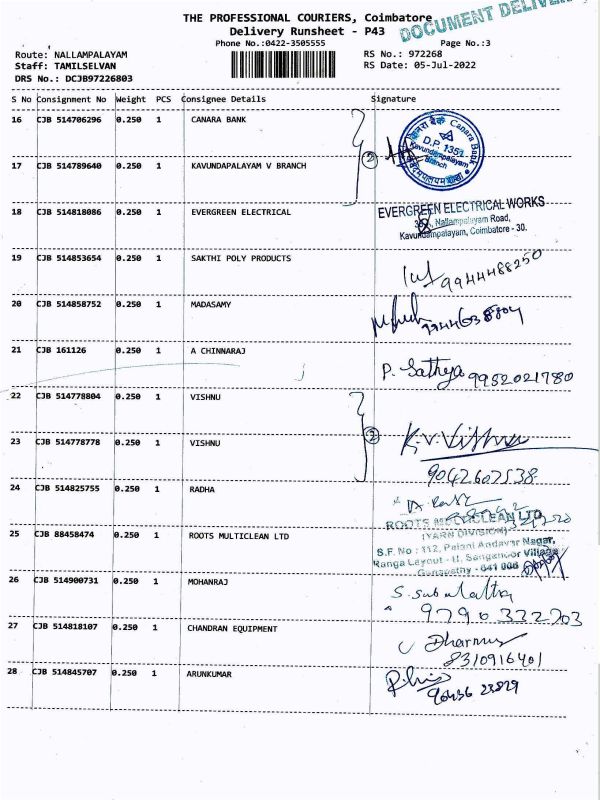 THE PROFESSIONAL COURIERS, Coimbatore
DOCUMENT
Delivery Runsheet - P43
Phone No.:0422-3505555
Page No.:3
Route: NALLAMPALAYAM
RS No.: 972268
Staff: TAMILSELVAN
RS Date: 05-Jul-2022
DRS No.: DCJB97226803
S No Consignment No Weight PCS Consignee Details Signature
16 CJB 514706296 0.250 1 CANARA BANK
Canara Bank
D.P. 1351
Kavundapalayam
Branch
2
17 CJB 514789640 0.250 1 KAVUNDAPALAYAM V BRANCH
18 CJB 514818086 0.250 1 EVERGREEN ELECTRICAL
EVERGREEN ELECTRICAL WORKS
Nallampalayam Road,
Kavundampalayam, Coimbatore - 30.
19 CJB 514853654 0.250 1 SAKTHI POLY PRODUCTS
9944488250
20 CJB 514858752 0.250 1 MADASAMY
21 CJB 161126 0.250 1 A CHINNARAJ
P. Sathya 9952021780
22 CJB 514778804 0.250 1 VISHNU
2
23 CJB 514778778 0.250 1 VISHNU
K.V. Vishnu
9042607538
24 CJB 514825755 0.250 1 RADHA
25 CJB 88458474 0.250 1 ROOTS MULTICLEAN LTD
ROOTS MULTICLEAN LTD
(YARN DIVISION)
S.F. No : 112, Palani Andavar Nagar,
Ranga Layout - II, Sanganoor Village
Ganapathy - 641 006
26 CJB 514900731 0.250 1 MOHANRAJ
27 CJB 514818107 0.250 1 CHANDRAN EQUIPMENT
8310916401
28 CJB 514845707 0.250 1 ARUNKUMAR